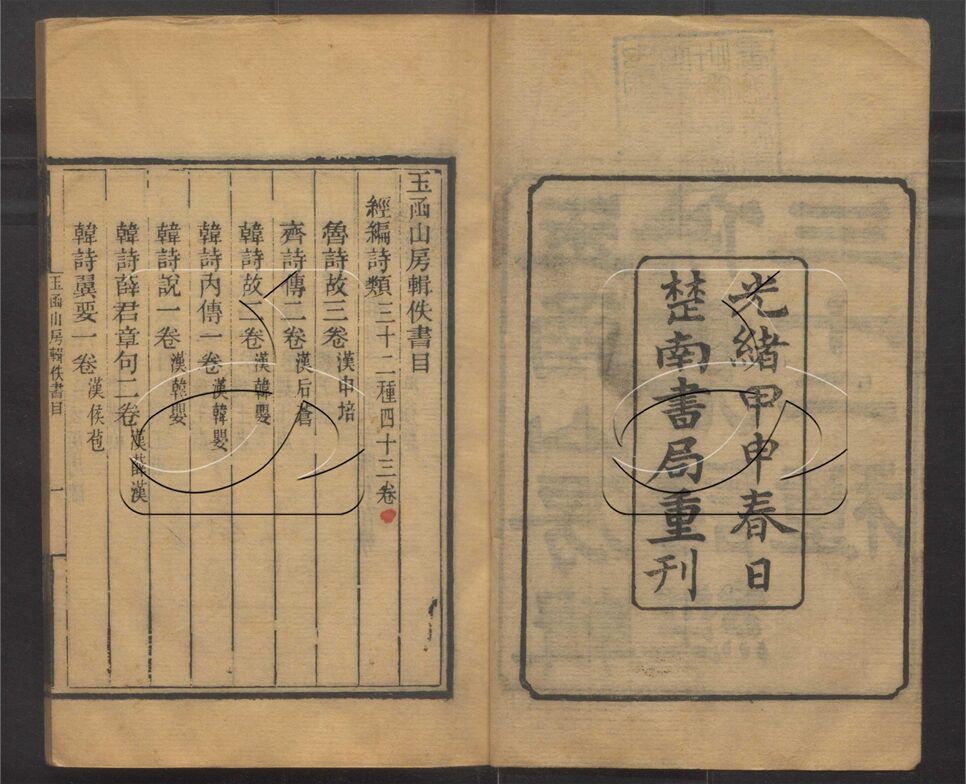 光緒甲申春日
楚南書局重刊
玉函山房輯佚書目
經編詩類三十二種四十三卷
魯詩故三卷漢申培
齊詩傳二卷漢后蒼
韓詩故二卷漢韓嬰
韓詩內傳一卷漢韓嬰
韓詩說一卷漢韓嬰
韓詩薛君章句二卷漢薛漢
韓詩翼要一卷漢侯苞
玉函山房輯佚書目
一